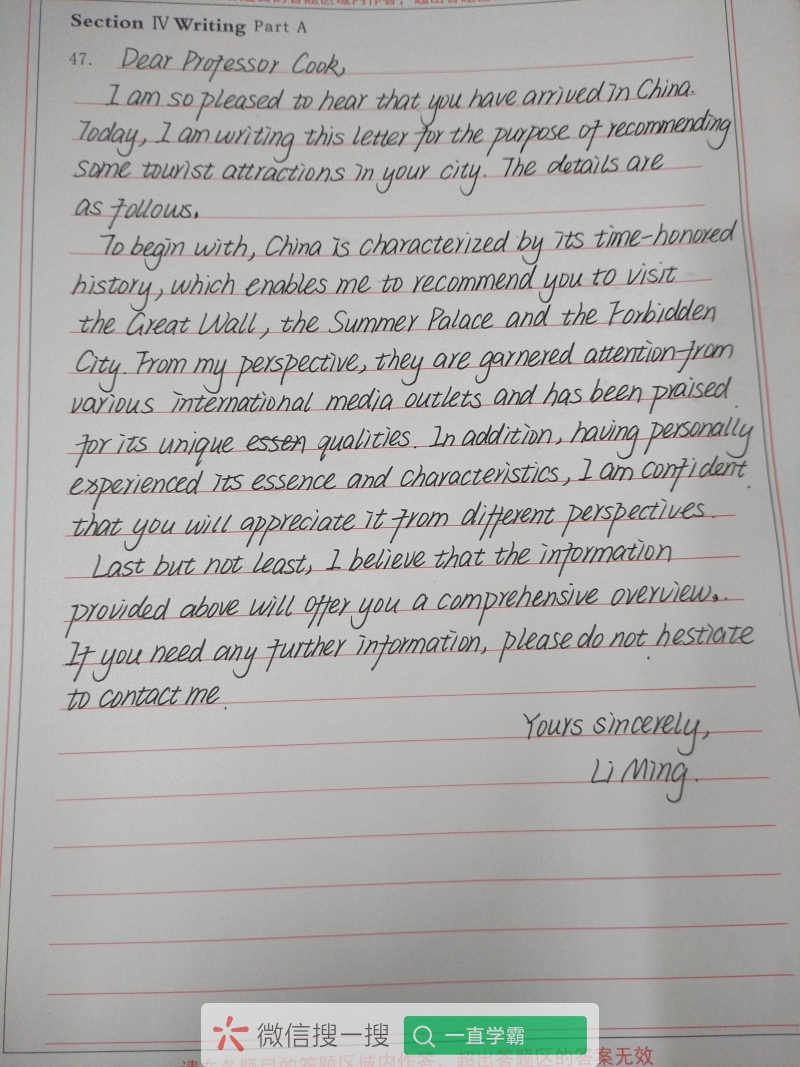 Section Ⅳ Writing Part A
47. Dear Professor Cook,
I am so pleased to hear that you have arrived in China.
Today, I am writing this letter for the purpose of recommending
some tourist attractions in your city. The details are
as follows.
To begin with, China is characterized by its time-honored
history, which enables me to recommend you to visit
the Great Wall, the Summer Palace and the Forbidden
City. From my perspective, they are garnered attention from
various international media outlets and has been praised
for its unique essen qualities. In addition, having personally
experienced its essence and characteristics, I am confident
that you will appreciate it from different perspectives.
Last but not least, I believe that the information
provided above will offer you a comprehensive overview.
If you need any further information, please do not hestiate
to contact me.
Yours sincerely,
Li Ming.
微信搜一搜 一直学霸
答案无效